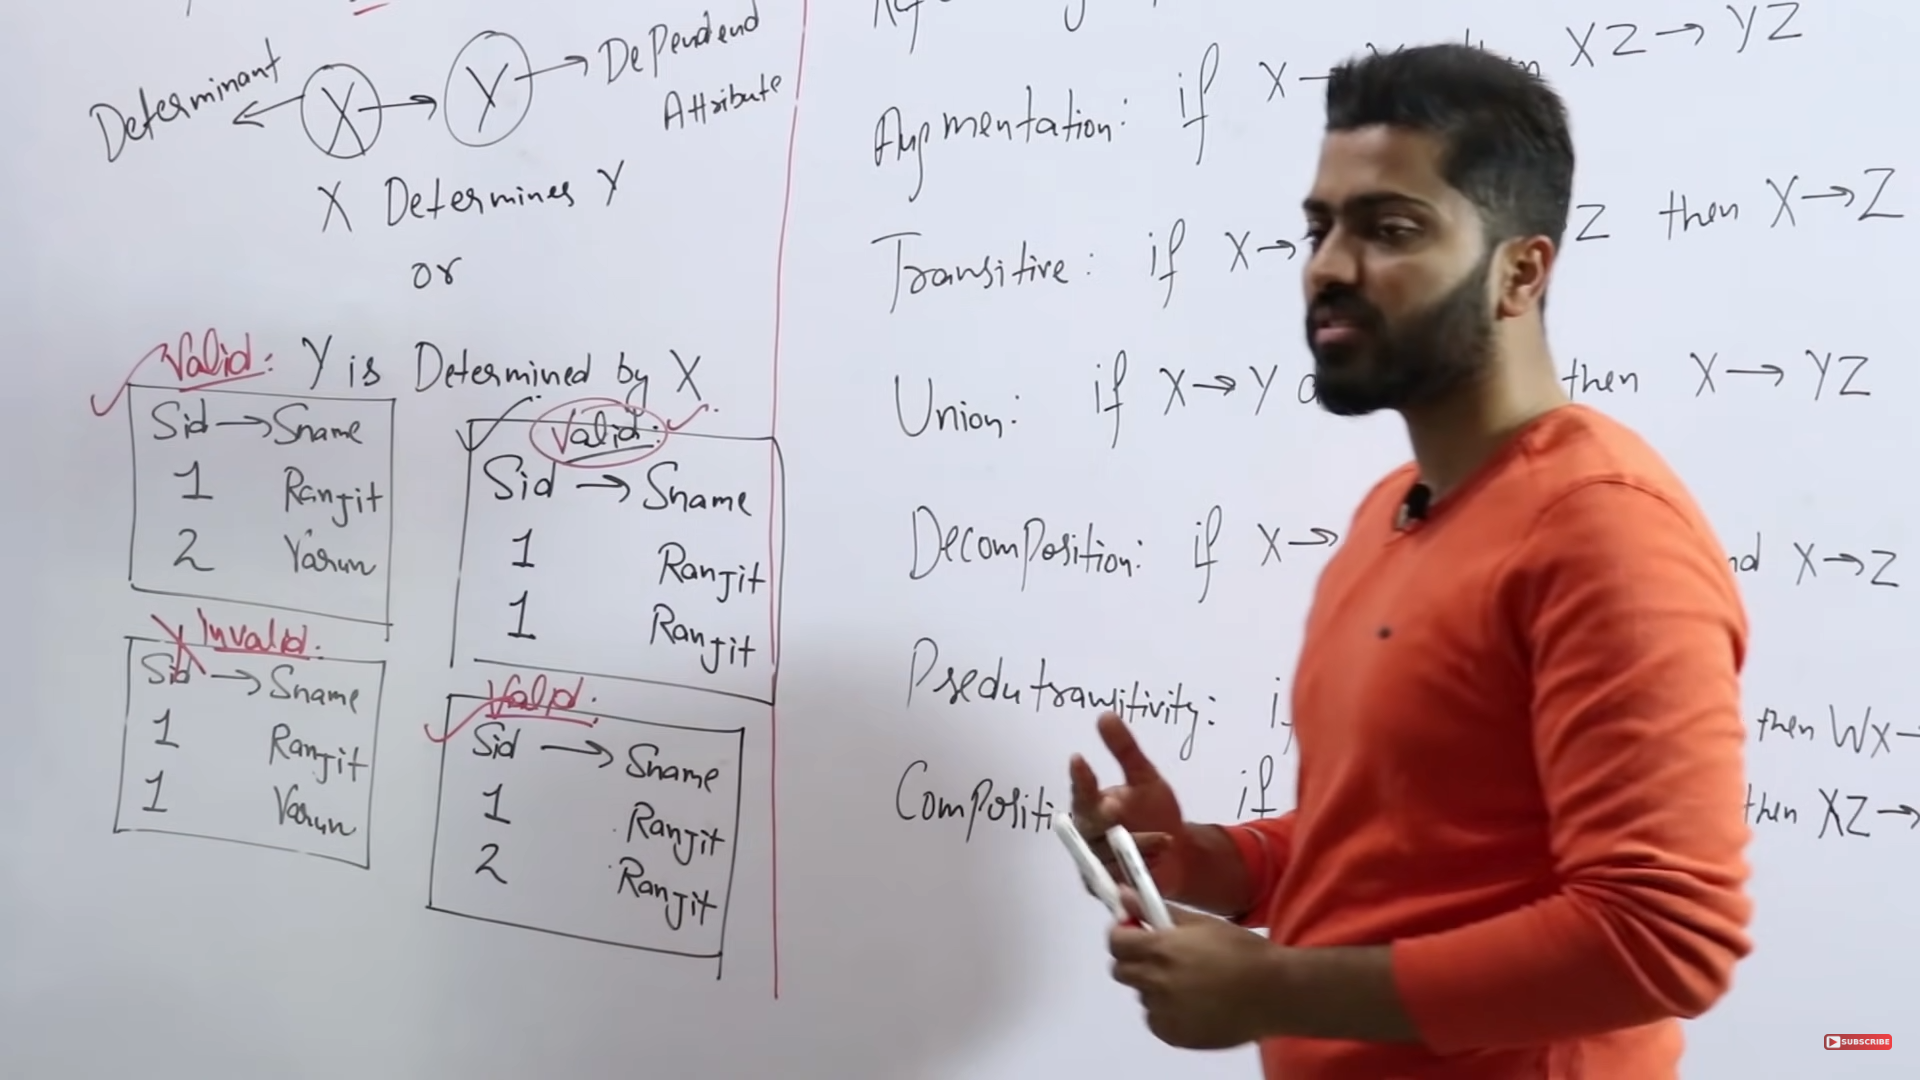 Determinant
X → Y → Dependend
Attribute
X Determines Y
or
Valid: Y is Determined by X
Sid → Sname
1 Ranjit
2 Varun
Valid:
Sid → Sname
1 Ranjit
1 Ranjit
Invalid:
Sid → Sname
1 Ranjit
1 Varun
Valid:
Sid → Sname
1 Ranjit
2 Ranjit
Augmentation: if X → XZ → YZ
Transitive: if X → Z then X → Z
Union: if X → Y then X → YZ
Decomposition: if X → X → Z
Psedutransitivity: then WX →
if then XZ →
SUBSCRIBE